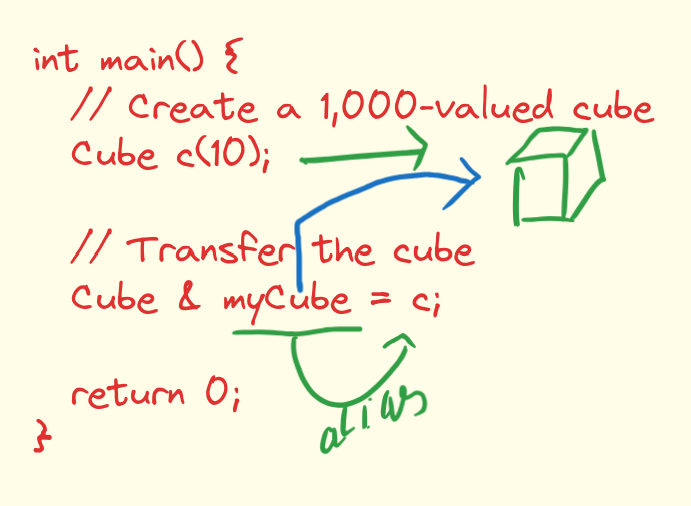 int main() {
// Create a 1,000-valued cube
Cube c(10);
// Transfer the cube
Cube & myCube = c;
return 0;
alias
}